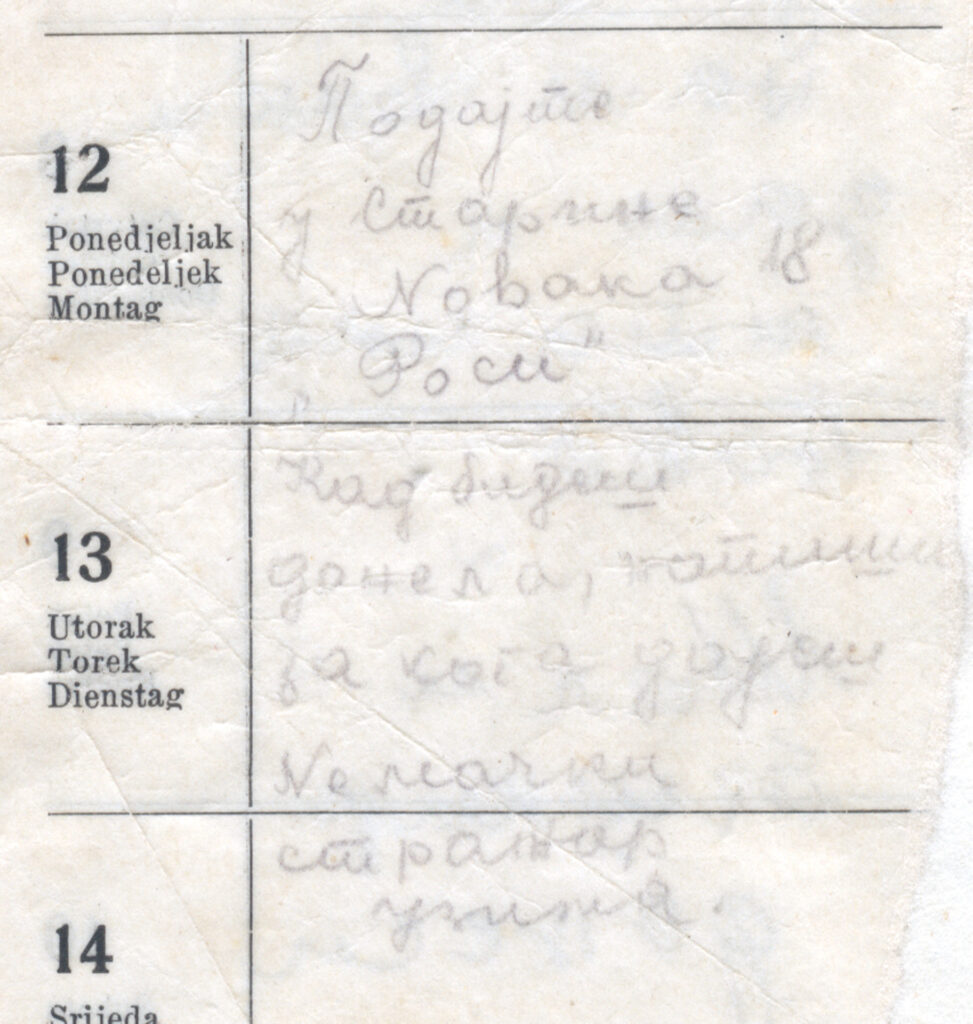 12
Ponedjeljak
Ponedeljek
Montag
Подајте
у старине
Новака 18
"Роси"
13
Utorak
Torek
Dienstag
Кад будеш
донела, напиши
за кога дајеш
Nемачки
стражар
узима.
14
Srijeda